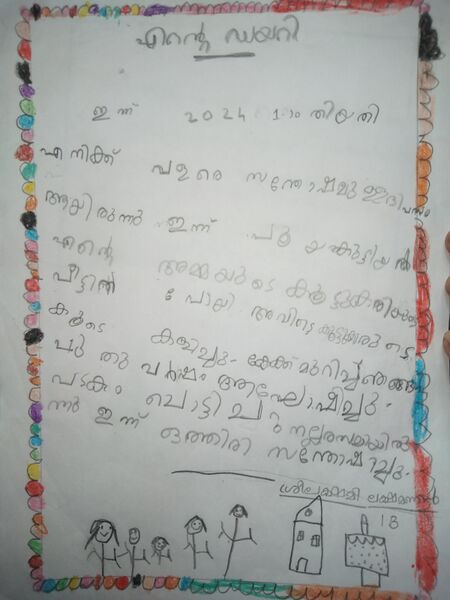 എന്റെ ഡയറി
ഇന്ന് 2024 1-ാം തിയതി
എനിക്ക് വളരെ സന്തോഷമുള്ള ദിവസം
ആയിരുന്നു ഇന്ന്
എന്റെ അമ്മയുടെ കൂട്ടുകാരിയുടെ
വീട്ടിൽ പോയി അവിടെ കൂട്ടുകാരുടെ
കൂടെ കളിച്ചു. കേക്ക് മുറിച്ച് ഞങ്ങൾ
പുതു വർഷം ആഘോഷിച്ചു.
പടക്കം പൊട്ടിച്ചു നല്ല രസമായിരു
ന്നു ഇന്ന് ഒത്തിരി സന്തോഷിച്ചു.
1 B